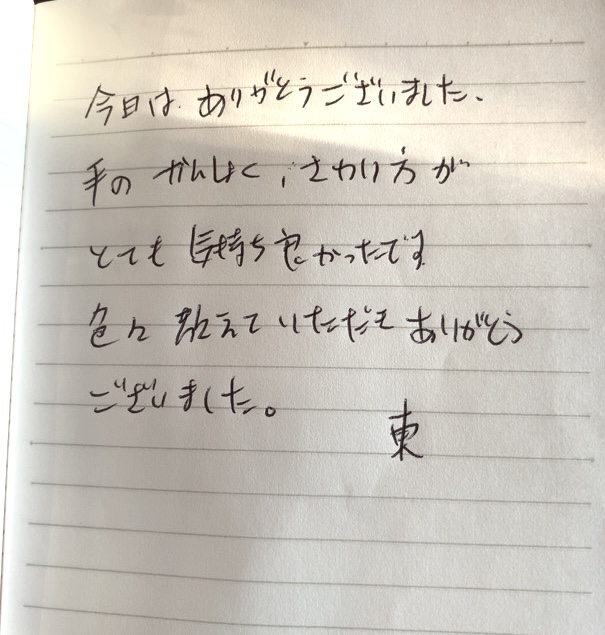 今日は、ありがとうございました、
手の かんしょく、さわり方が
とても 気持ち良かったです
色々 教えていただき ありがとう
ございました。
東